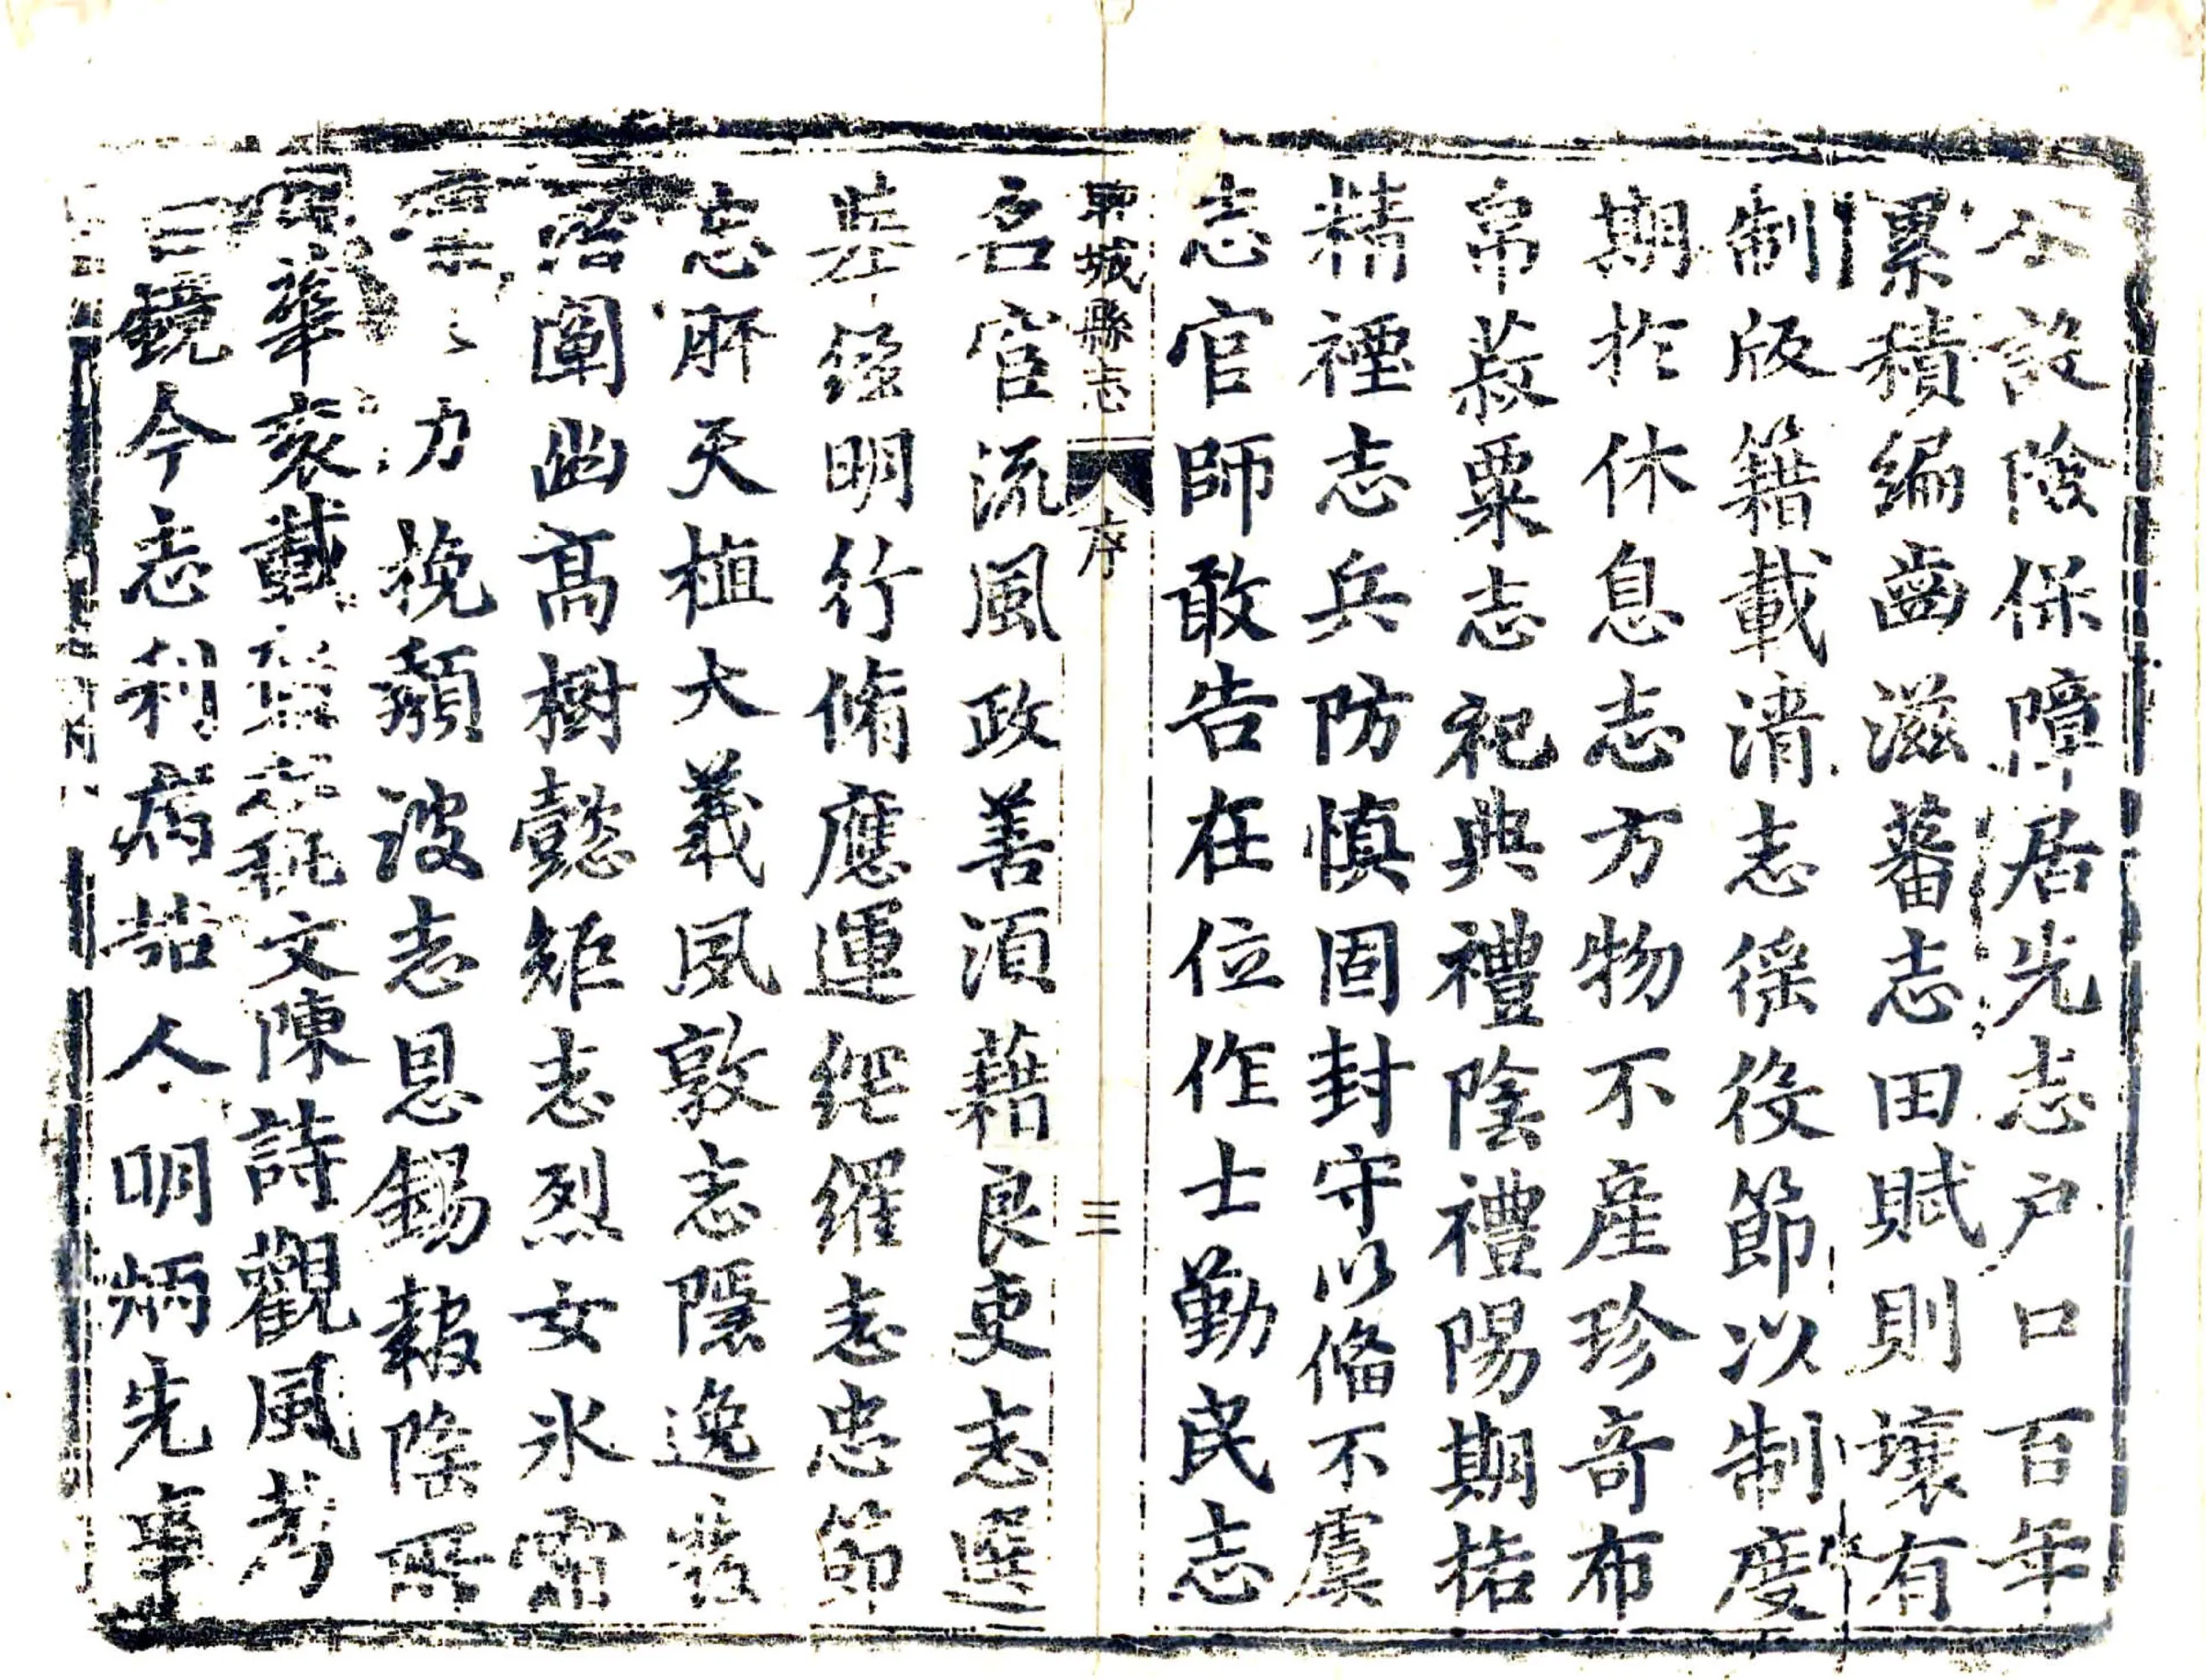 公設險保障居先志户口百年
累積編齒滋蕃志田賦則壤有
制版籍載清志徭役節以制度
期於休息志方物不産珍奇布
帛菽粟志祀典禮陰禮陽期格
精禋志兵防慎固封守以俻不虞
志官師敢告在位作士勤民志
聊城縣志 序 三
名宦流風政善須藉良吏志選
舉經明行脩應運網羅志忠節
志肝天植大義夙敦志隱逸發
潛闡幽高樹懿矩志烈女氷霜
力挽頽波志恩錫報陰
華衮載文陳詩觀風考
鏡今志利病喆人明炳先事